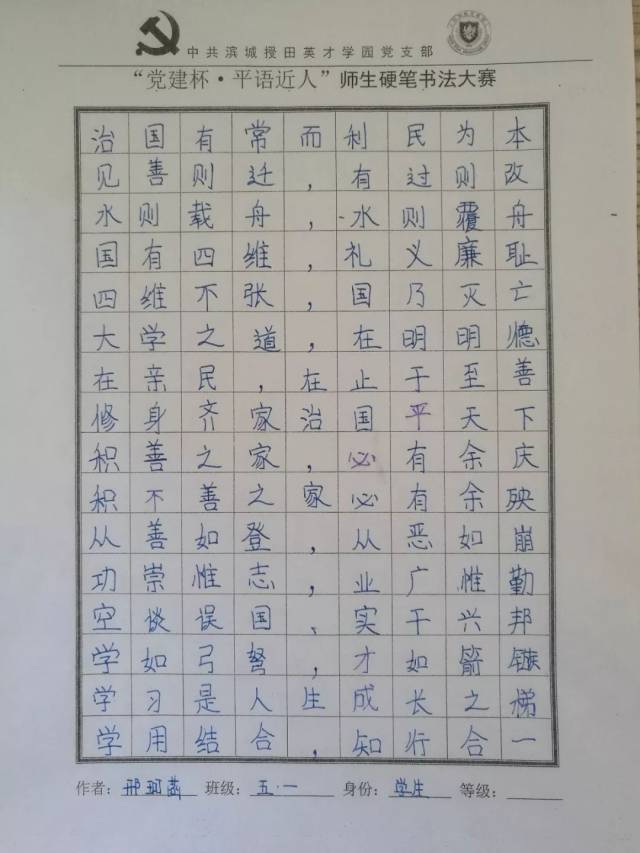 中共滨城授田英才学园党支部
“党建杯·平语近人”师生硬笔书法大赛
治国有常而利民为本
见善则迁，有过则改
水则载舟，水则覆舟
国有四维，礼义廉耻
四维不张，国乃灭亡
大学之道，在明明德
在亲民，在止于至善
修身齐家治国平天下
积善之家，必有余庆
积不善之家必有余殃
从善如登，从恶如崩
功崇惟志，业广惟勤
空谈误国、实干兴邦
学如弓弩，才如箭镞
学习是人生成长之梯
学用结合，知行合一
作者：邢珂菡 班级：五·一 身份：学生 等级：